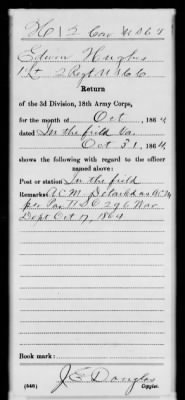 H 12 Cav U.S.C.T.
Edwin Hughes
1 Lt 2 Regt
Return
of the 3d Division, 18th Army Corps,
for the month of Oct, 1864
dated In the field Va.
Oct 31, 1864
shows the following with regard to the officer
named above:
Post or station In the field
Remarks A.C.M. Detached as A.C.M.
per Par. II S.O. 296 War
Dept Oct 17, 1864
Book mark:
(646) J. E. Douglas
Copyist.